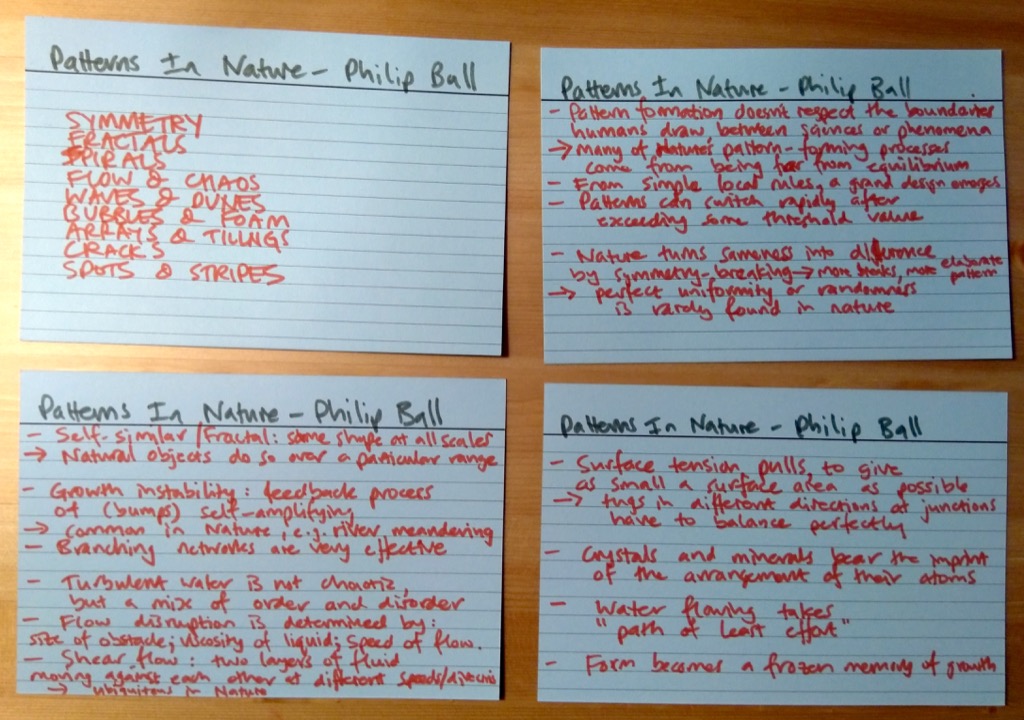 Patterns In Nature - Philip Ball
SYMMETRY
FRACTALS
SPIRALS
FLOW & CHAOS
WAVES & DUNES
BUBBLES & FOAM
ARRAYS & TILINGS
CRACKS
SPOTS & STRIPES
Patterns In Nature - Philip Ball
- Pattern formation doesn't respect the boundaries
humans draw between sciences or phenomena
→ many of Nature's pattern-forming processes
come from being far from equilibrium
- From simple local rules, a grand design emerges
- Patterns can switch rapidly after
exceeding some threshold value
- Nature turns sameness into difference
by symmetry-breaking → more breaks, more elaborate
pattern
→ perfect uniformity or randomness
is rarely found in nature
Patterns In Nature - Philip Ball
- Self-similar/Fractal: same shape at all scales
→ Natural objects do so over a particular range
- Growth instability: feedback process
of (bumps) self-amplifying
→ Common in Nature, e.g. river meandering
- Branching networks are very effective
- Turbulent water is not chaotic,
but a mix of order and disorder
- Flow disruption is determined by:
size of obstacle; viscosity of liquid; speed of flow.
- Shear flow: two layers of fluid
moving against each other at different speeds/directions
→ ubiquitous in Nature
Patterns In Nature - Philip Ball
- Surface tension pulls to give
as small a surface area as possible
→ tugs in different directions at junctions
have to balance perfectly
- Crystals and minerals bear the imprint
of the arrangement of their atoms
- Water flowing takes
"path of least effort"
- Form becomes a frozen memory of growth